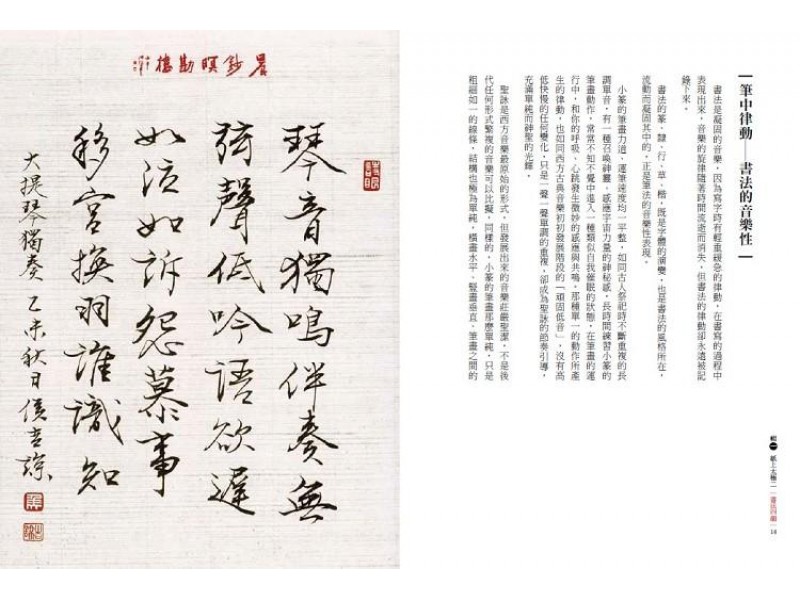 筆中律動──書法的音樂性
書法是凝固的音樂,因為寫字時有輕重緩急的律動,在書寫的過程中
表現出來,音樂的旋律隨著時間流逝而消失,但書法的律動卻永遠被記
錄下來。
書法的篆、隸、行、草、楷,既是字體的演變,也是書法的風格所在,
流動而凝固其中的,正是筆法的音樂性表現。
小篆的筆畫力道、運筆速度均一平整,如同古人祭祀時不斷重複的長
調單音,有一種召喚神靈、感應宇宙力量的神秘感,長時間練習小篆的
筆畫動作,常常不知不覺中進入一種類似自我催眠的狀態,在筆畫的運
行中,和你的呼吸、心跳發生微妙的感應與共鳴,那種單一的動作所產
生的律動,也如同西方古典音樂初初發展階段的「頑固低音」,沒有高
低快慢的任何變化,只是一聲一聲單調的重複,卻成為聖詠的節奏引導,
充滿單純而神聖的光輝。
聖詠是西方音樂最原始的形式,但發展出來的音樂莊嚴聖潔,不是後
代任何形式繁複的音樂可以比擬,同樣的,小篆的筆畫那麼單純,只是
粗細如一的線條,結構也極為單純,橫畫水平、豎畫垂直,筆畫之間的
輯一 紙上太極 14
晨鈔暝勘樓
琴音獨鳴伴奏無
弦聲低吟語欲遲
如泣如訴怨慕事
移宮換羽誰識知
大提琴獨奏 乙未秋日侯吉諒